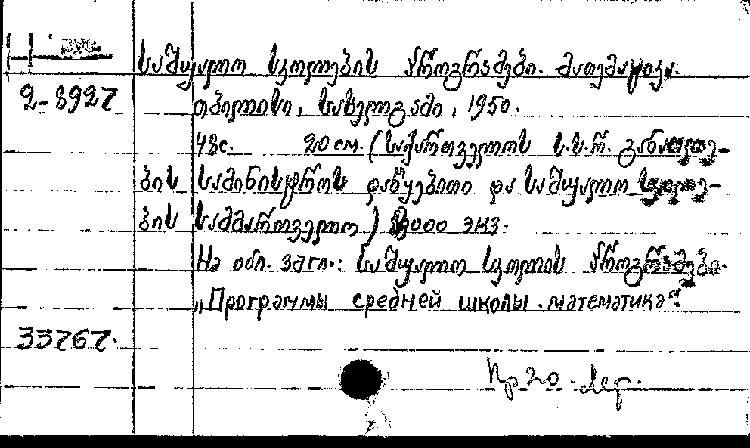 საშუალო სკოლების პროგრამები. მათემატიკა.
2-8927
თბილისი, სახელგამი, 1950.
48с. 20см. (საქართველოს ს.ს.რ. განათლე-
ბის სამინისტროს დაწყებითი და საშუალო სკოლე-
ბის სამმართველო) 000 экз.
На обл. загл.: საშუალო სკოლის პროგრამები.
„Программы средней школы. математика“.
33767.